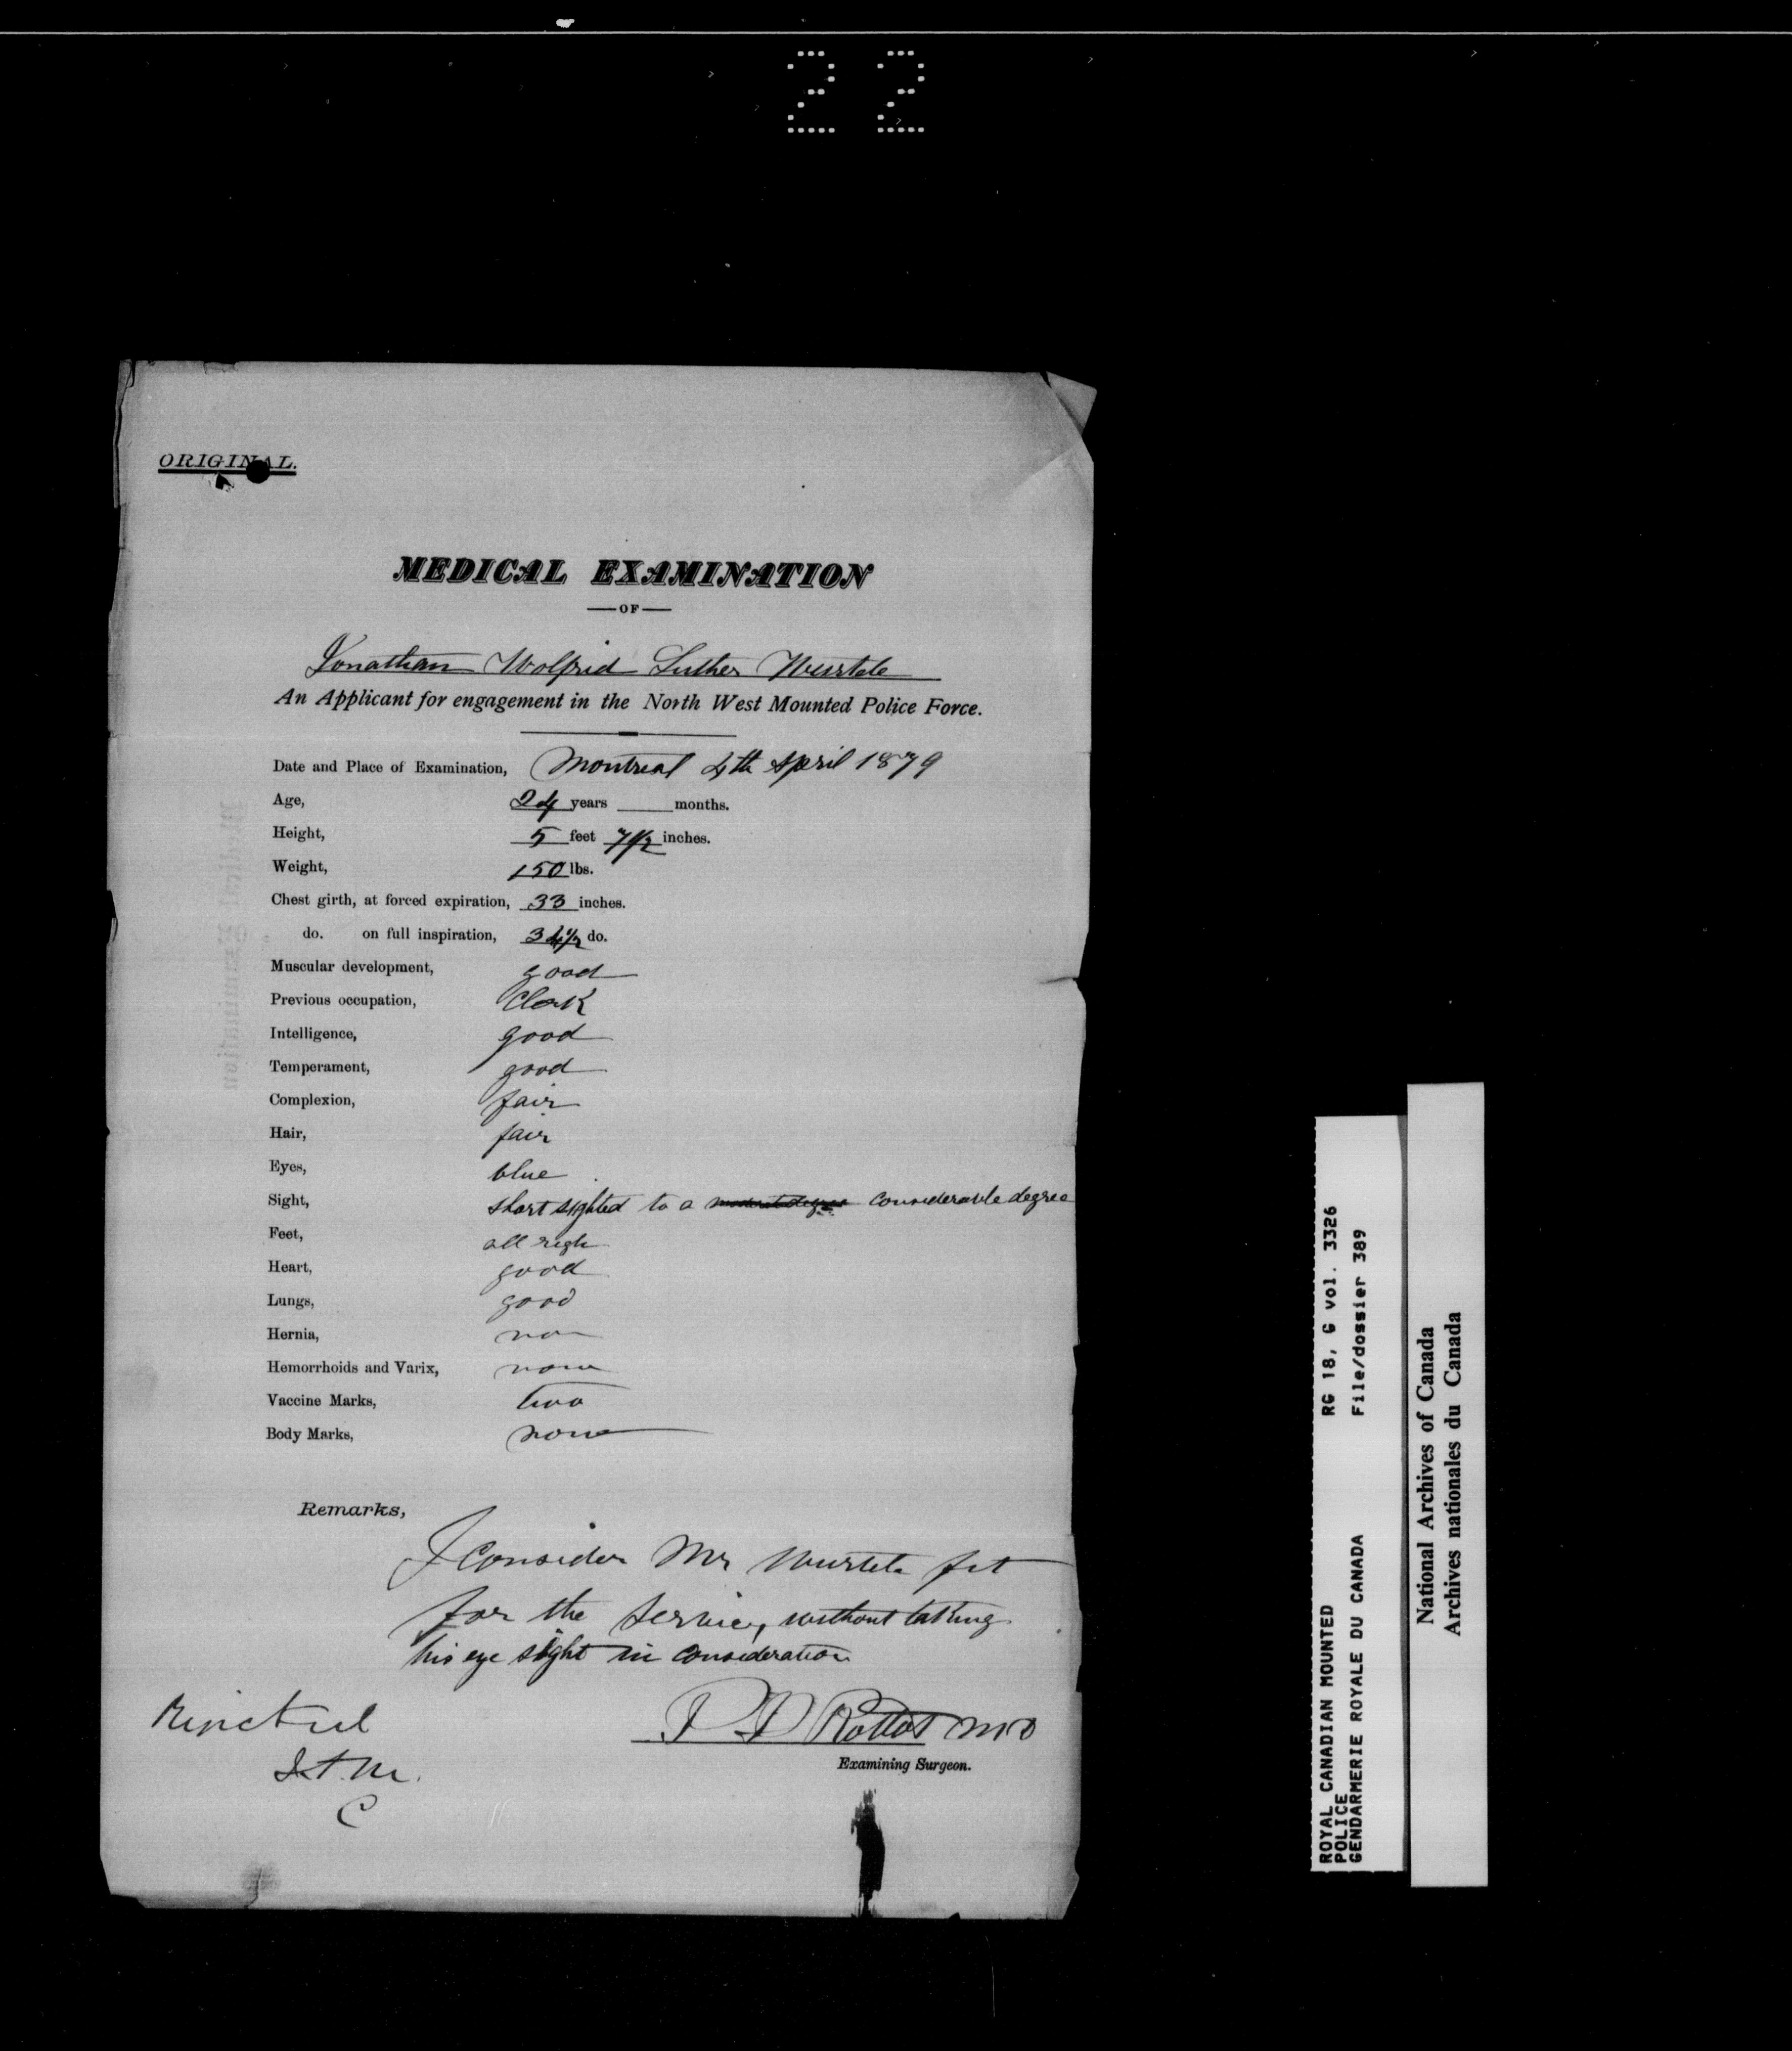 22
ORIGINAL.
MEDICAL EXAMINATION
—OF—
Jonathan Wolfrid Luther Wurtele
An Applicant for engagement in the North West Mounted Police Force.
Date and Place of Examination, Montreal 4th April 1879
Age, 24 years ____ months.
Height, 5 feet 7 1/2 inches.
Weight, 150 lbs.
Chest girth, at forced expiration, 33 inches.
do. on full inspiration, 34 1/2 do.
Muscular development, good
Previous occupation, Clerk
Intelligence, good
Temperament, good
Complexion, fair
Hair, fair
Eyes, blue
Sight, short sighted to a considerable degree
Feet, all righ
Heart, good
Lungs, good
Hernia, no
Hemorrhoids and Varix, none
Vaccine Marks, two
Body Marks, none
Remarks,
I consider Mr Wurtele fit
for the service, without taking
his eye sight in consideration
Rottot MD
Examining Surgeon.
Rejected
ROYAL CANADIAN MOUNTED RG 18, G vol. 3326
POLICE
GENDARMERIE ROYALE DU CANADA File/dossier 389
National Archives of Canada
Archives nationales du Canada